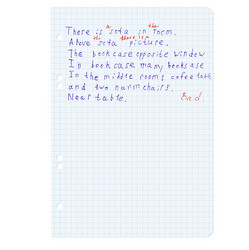 a the
There is sofa in room.
Above sofa picture.
the there is a
The bookcase opposite window
In bookcase many bookcase
In the middle rooms cofee table
and two narmchairs.
Near table.
Bad